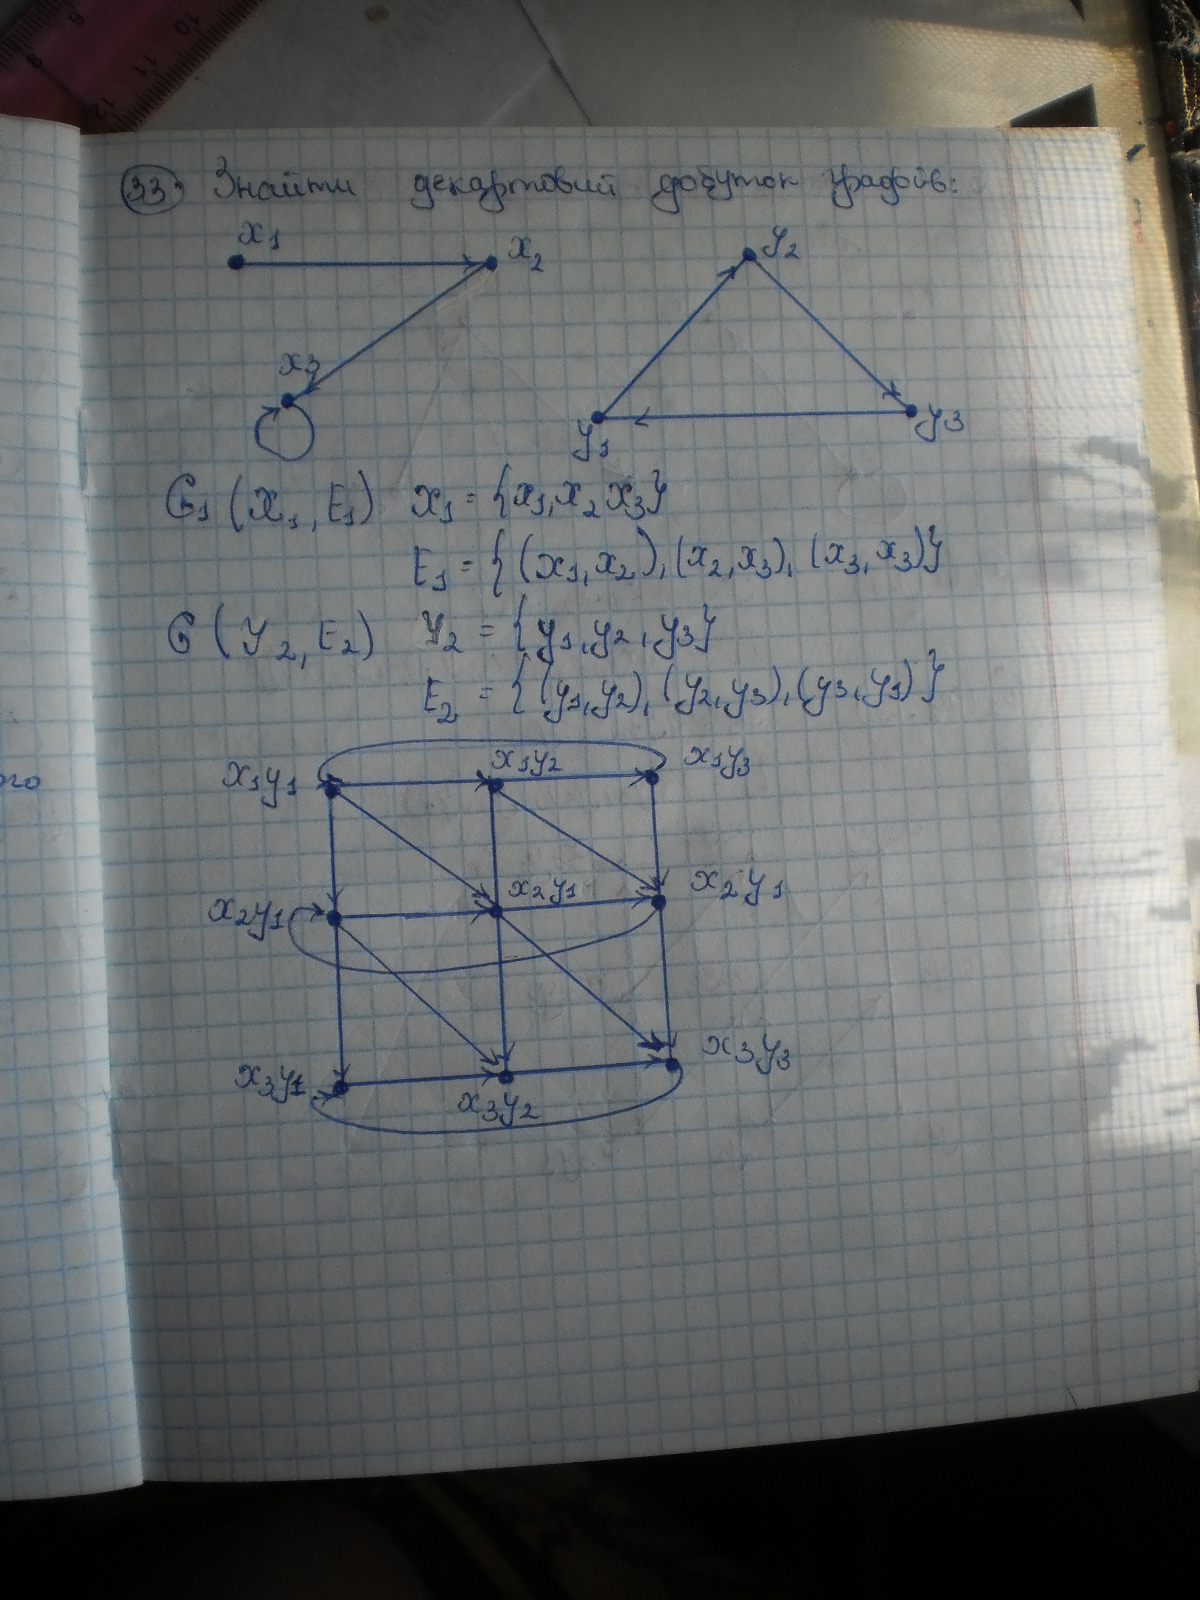 33. Знайти декартовий добуток графів:
x1
x2
y2
x3
y1
y3
G1 (X1, E1) X1 = {x1, x2 x3}
E1 = {(x1, x2), (x2, x3), (x3, x3)}
G (Y2, E2) Y2 = {y1, y2, y3}
E2 = {(y1, y2), (y2, y3), (y3, y1)}
x1y1
x1y2
x1y3
x2y1
x2y1
x2y1
x3y1
x3y2
x3y3
ого
9
8
10
11
12